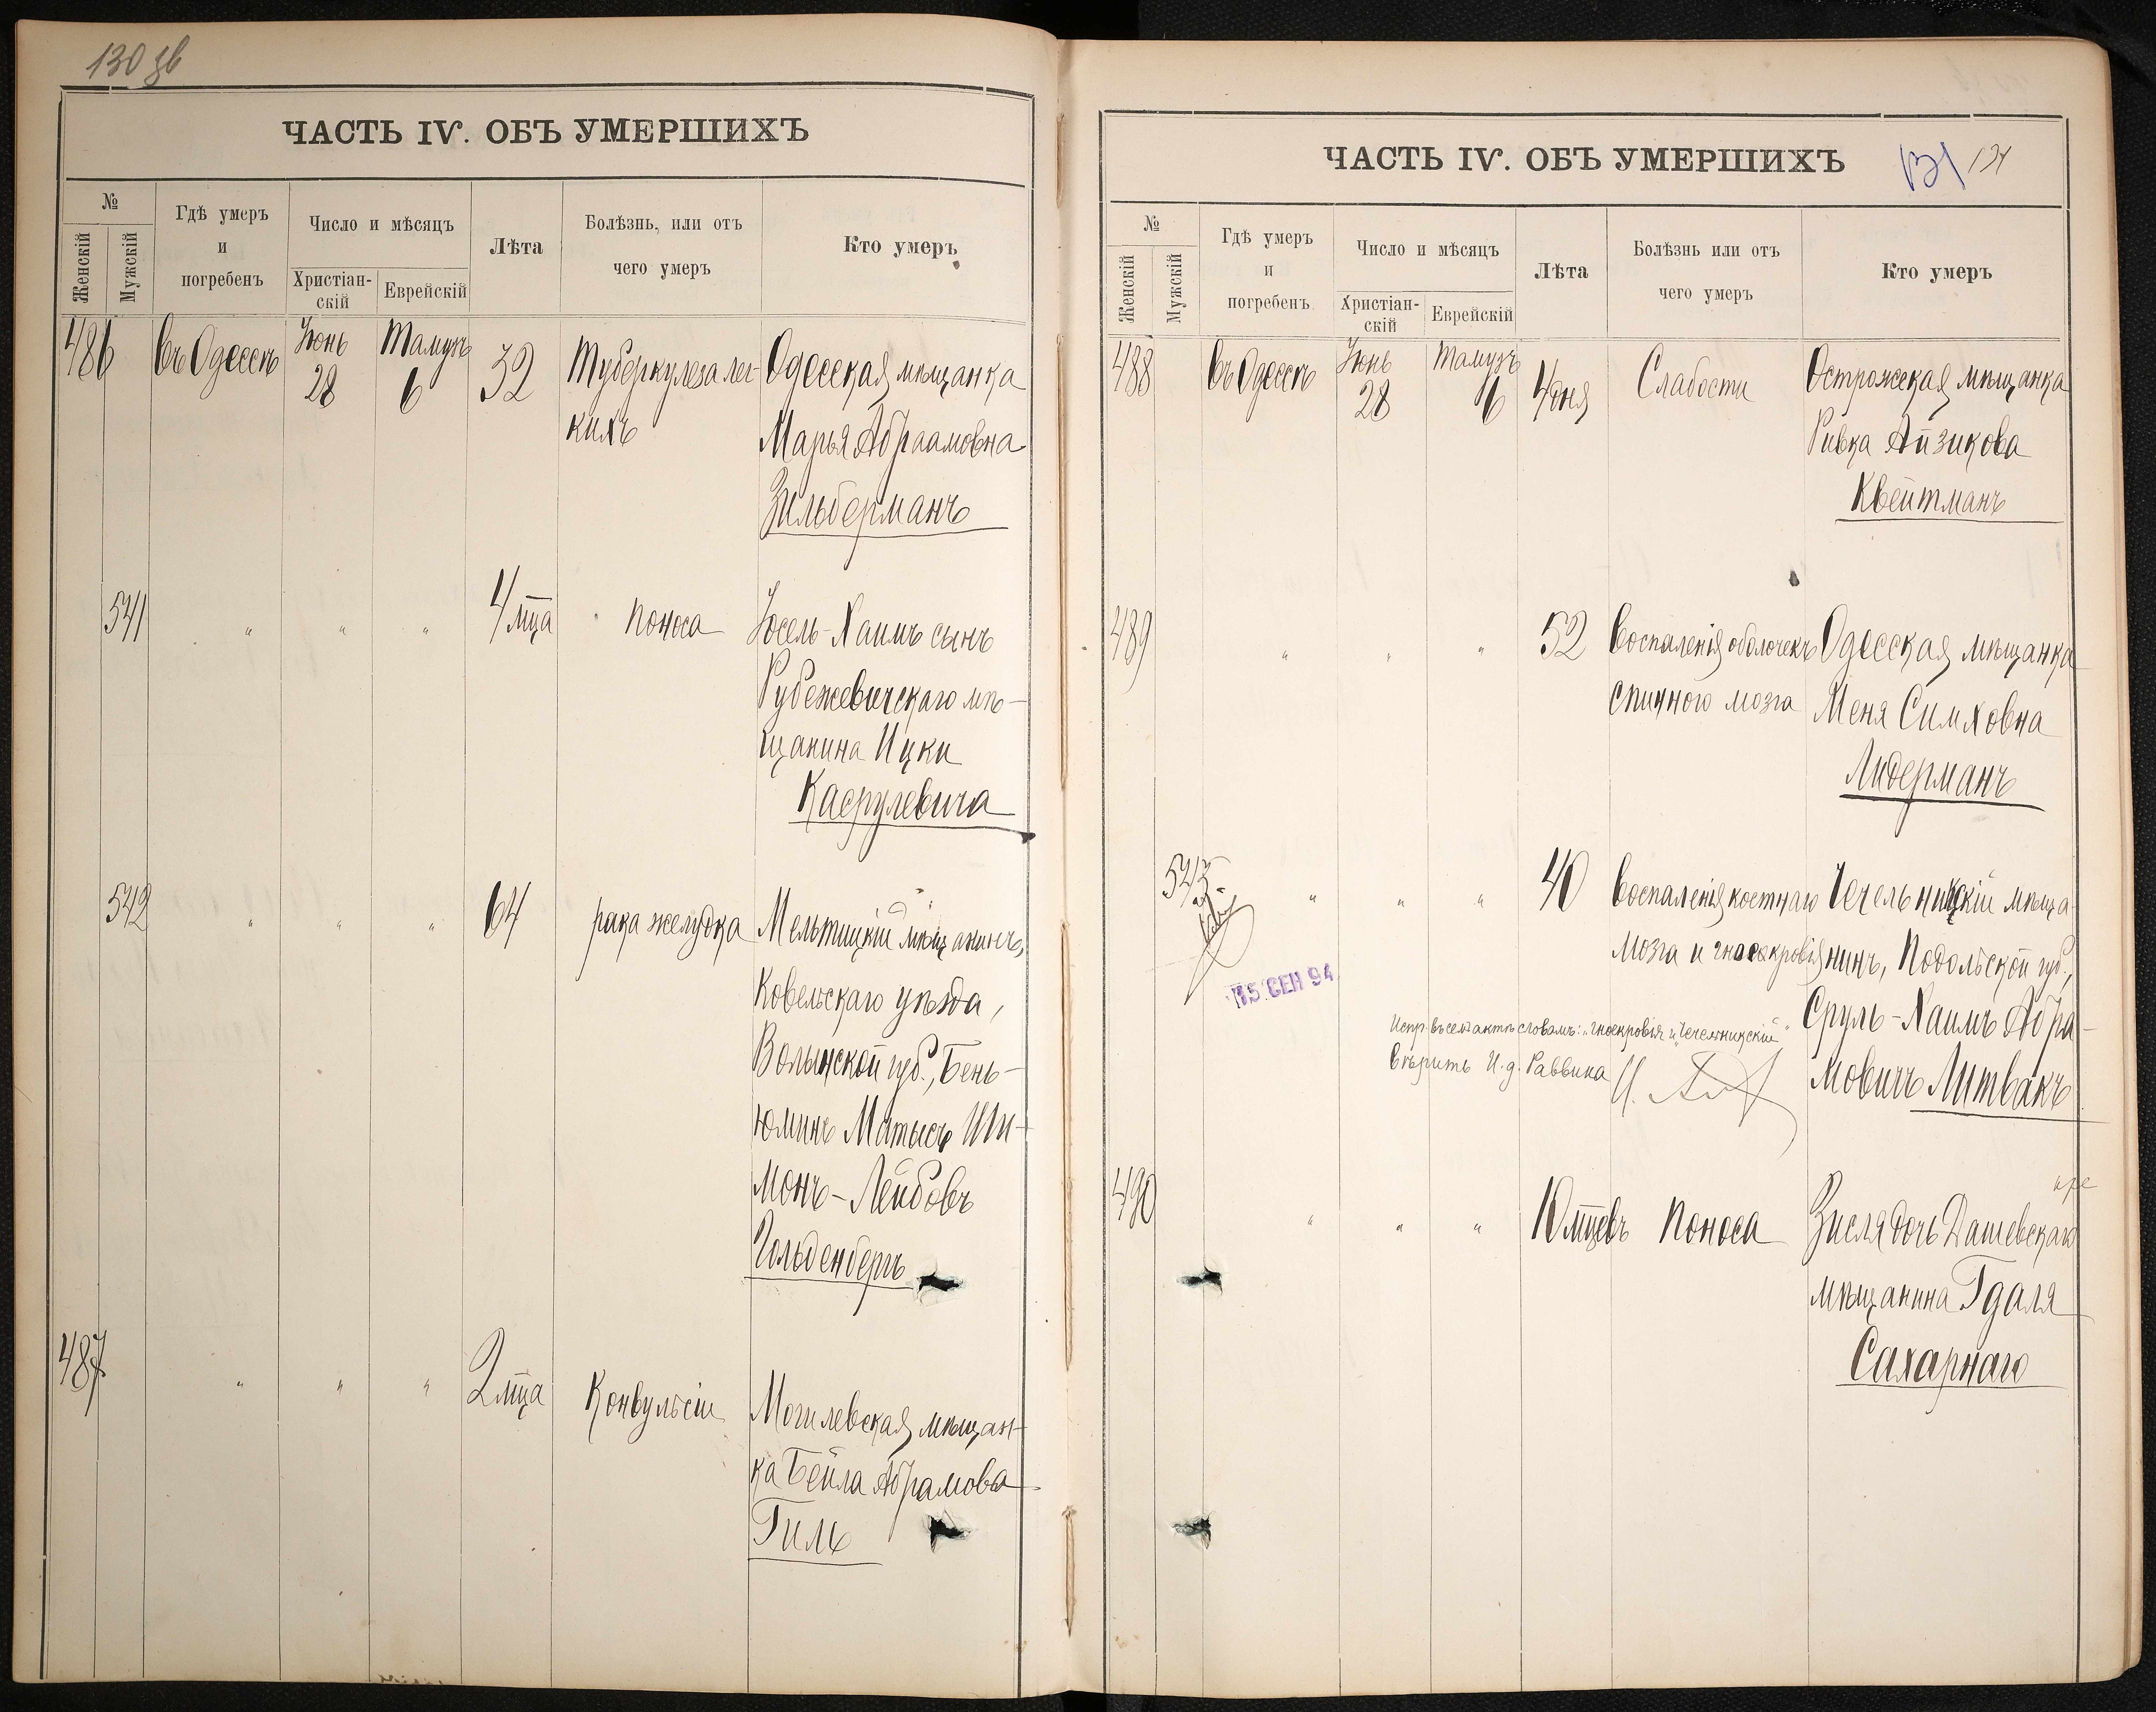 130 зв
ЧАСТЬ IV. ОБЪ УМЕРШИХЪ
№
Женскій
Мужскій
Гдѣ умеръ
и
погребенъ
Число и мѣсяцъ
Христіан-
скій
Еврейскій
Лѣта
Болѣзнь, или отъ
чего умеръ
Кто умеръ
486 Въ Одессѣ Іюнь 28 Тамузъ 6 32 Туберкулеза лег-
кихъ
Одесская мѣщанка
Марья Абраамовна
Зильберманъ
541 " " " 4 мца поноса Іосель-Хаимъ сынъ
Рубежевичскаго мѣ-
щанина Ицки
Касрулевича
542 " " " 64 рака желудка Мельницкій мѣщанинъ,
Ковельскаго уѣзда,
Волынской губ., Бень-
юминъ Матысъ Ши-
монъ-Лейбовъ
Гольденбергъ
487 " " " 2 мца Конвульсіи Могилевская мѣщан-
ка Бейла Абрамова
Гиль
ЧАСТЬ IV. ОБЪ УМЕРШИХЪ
131 131
№
Женскій
Мужскій
Гдѣ умеръ
и
погребенъ
Число и мѣсяцъ
Христіан-
скій
Еврейскій
Лѣта
Болѣзнь или отъ
чего умеръ
Кто умеръ
488 Въ Одессѣ Іюнь 28 Тамузъ 6 4 дня Слабости Острожская мѣщанка
Ривка Айзикова
Квейтманъ
489 " " " 52 Воспаленія оболочекъ
спинного мозга
Одесская мѣщанка
Меня Симховна
Лидерманъ
543 " " " 40 Воспаленія костнаго
мозга и гноекровія
Чечельницкій мѣща-
нинъ, Подольской губ.,
Сруль-Хаимъ Абра-
мовичъ Литвакъ
15 СЕН 94
Испр. въ семъ актѣ словамъ: "гноекровія и "Чечельницкій"
вѣрить И. д. Раввина
490 " " " 10 мцевъ поноса Зисля дочь Дашевскаго
мѣщанина Гдаля
Сахарнаго